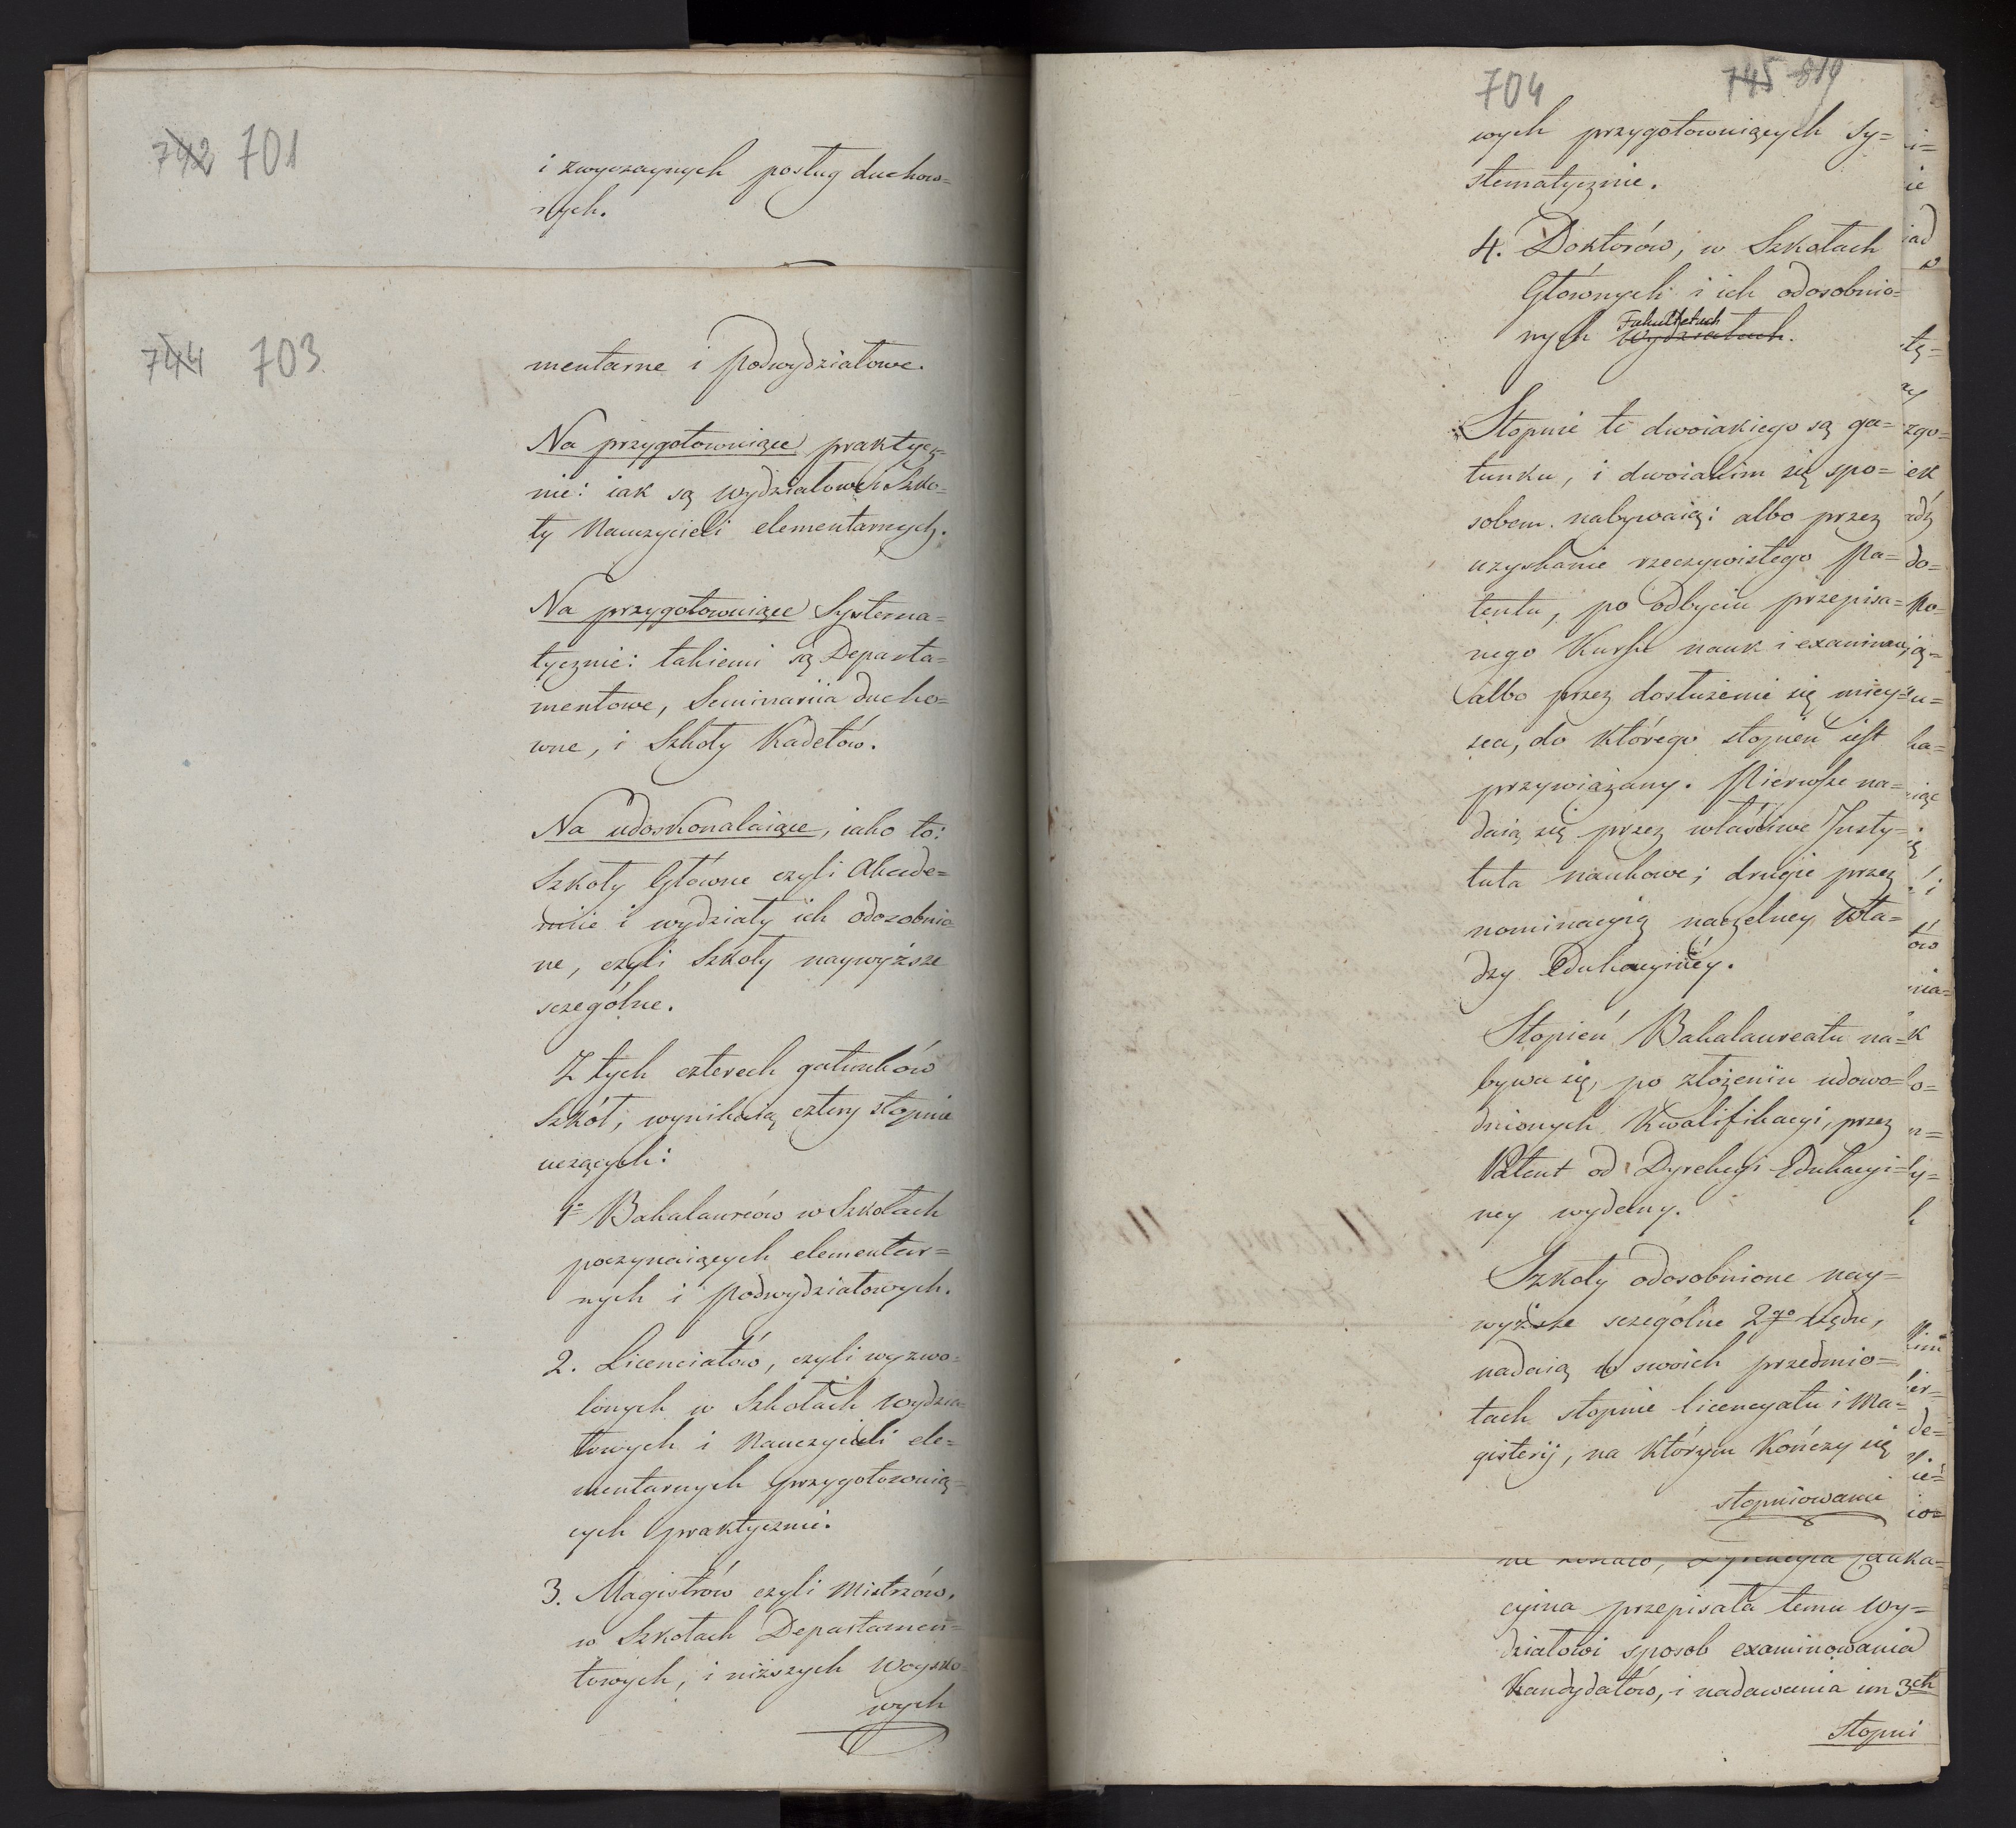 742 701
i zwyczaynych posług duchow=
nych.
744 703
mentarne i podwydziałowe.
Na przygotowuiące praktycz=
nie: iak są wydziałowe i Szko=
ły Nauczycieli elementarnych.
Na przygotowuiące Systema=
tycznie: takiemi są Departa=
mentowe, Seminariia ducho=
wne, i Szkoły Kadetów.
Na udoskonalaiące, iako to:
Szkoły Główne czyli Akade=
miie i wydziały ich odosobnio=
ne, czyli Szkoły naywyższe
sczególne.
Z tych czterech gatunków
Szkół, wynikaią cztery stopnie
uczących:
1º Bakalaureów w Szkołach
poczynaiących elementar=
nych i podwydziałowych.
2. Licenciatów, czyli wyzwo=
lonych w Szkołach wydzia=
łowych i Nauczycieli ele=
mentarnych przygotowuią=
cych praktycznie.
3. Magistrów czyli Mistrzów,
w Szkołach Departamen=
towych, i niższych Woysko=
wych
704 745 819
wych przygotowuiących Sy=
stematycznie.
4. Doktorów, w Szkołach
Głównych i ich odosobnio=
Fakultetach
nych Wydziałach.
Stopnie te dwoiakiego są ga=
tunku, i dwoiakim się spo=
sobem nabywaią: albo przez
uzyskanie rzeczywistego Pa=
tentu, po odbyciu przepisa=
nego Kursu nauk i
albo przez dosłużenie się miey=
sca, do którego stopień iest
przywiązany. Pierwsze na=
daią się przez właściwe Insty=
tuta naukowe; drugie przez
nominacyią naczelney Wła=
dzy Edukacyiney.
Stopień Bakalaureatu na=
bywa się, po złożeniu udowo=
dnionych Kwalifikacyi, przez
Patent od Dyrekcyi Edukacyi=
ney wydany.
Szkoły odosobnione nay=
wyższe sczególne 2go rzędu,
nadaią w swoich przedmio=
tach stopnie licencyatu i Ma=
gisterij, na którym kończy się
stopniowanie
cyina przepisała temu Wy=
działowi sposob examinowania
Kandydatów, i nadawania im 3ch
Stopni